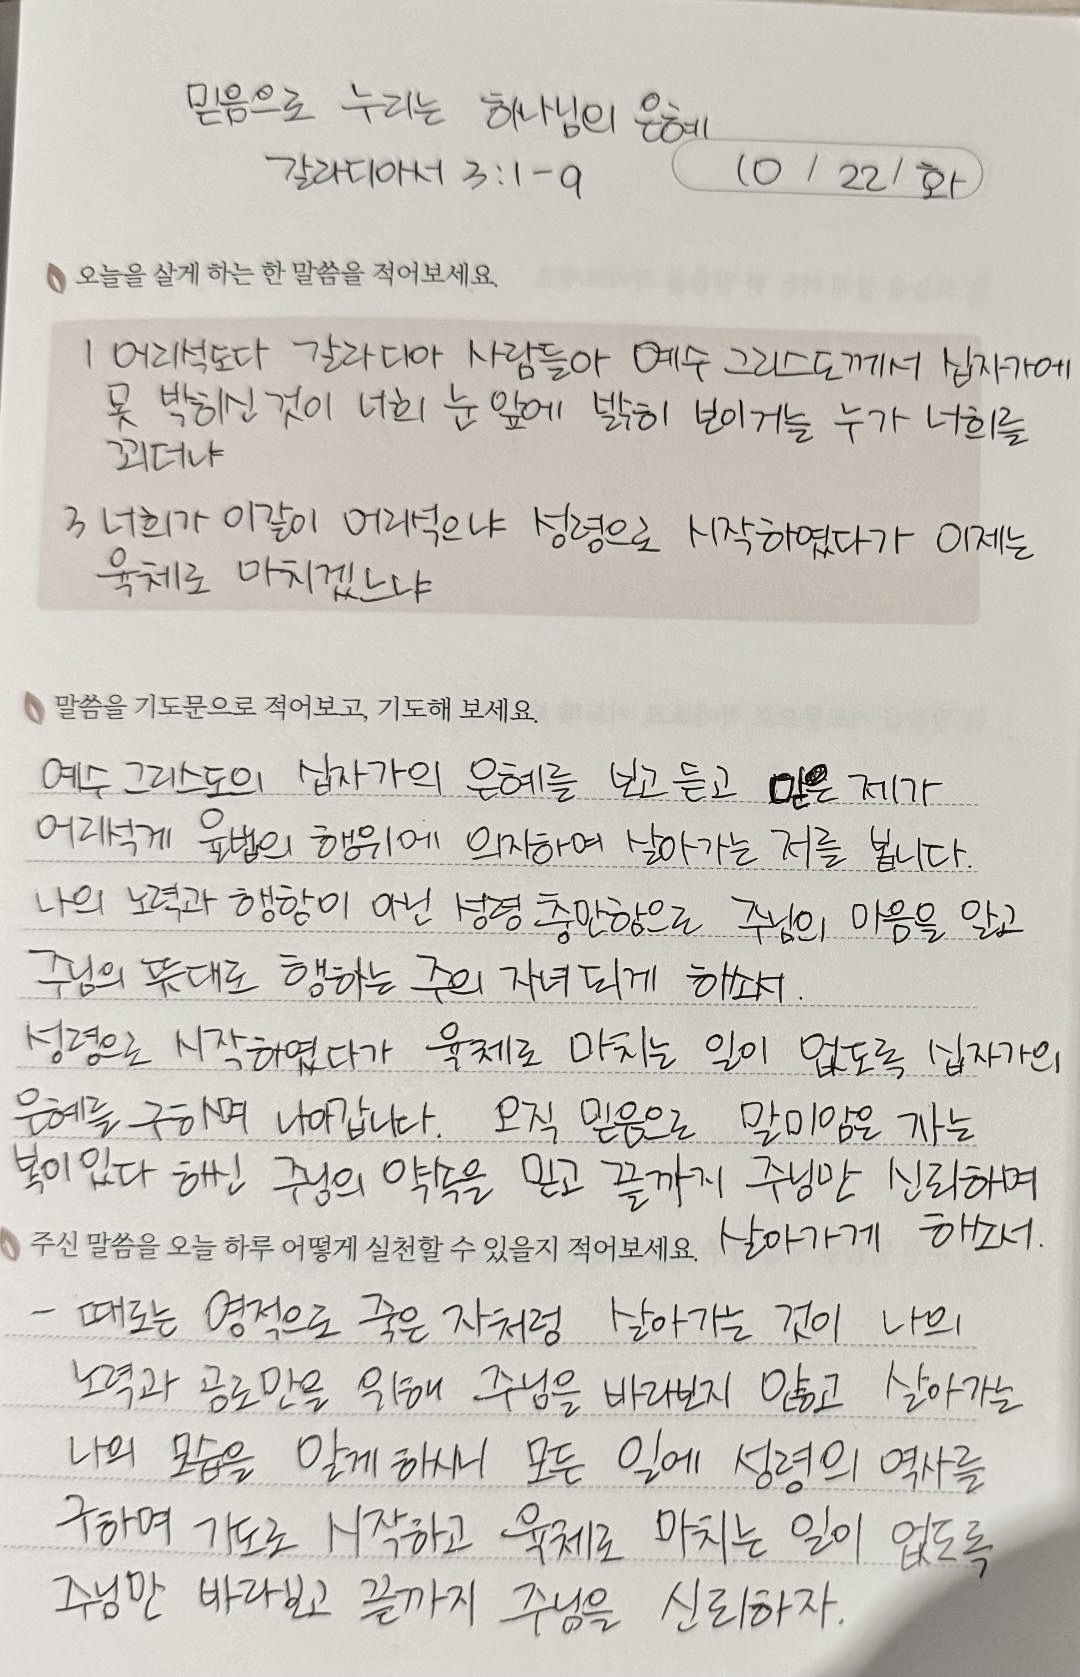 믿음으로 누리는 하나님의 은혜
갈라디아서 3:1-9
10 / 22 / 화
오늘을 살게 하는 한 말씀을 적어보세요.
1 어리석도다 갈라디아 사람들아 예수 그리스도께서 십자가에
못 박히신 것이 너희 눈 앞에 밝히 보이거늘 누가 너희를
꾀더냐
3 너희가 이같이 어리석으냐 성령으로 시작하였다가 이제는
육체로 마치겠느냐
말씀을 기도문으로 적어보고, 기도해 보세요.
예수 그리스도의 십자가의 은혜를 보고 듣고 믿은 제가
어리석게 율법의 행위에 의지하여 살아가는 저를 봅니다.
나의 노력과 행함이 아닌 성령 충만함으로 주님의 마음을 알고
주님의 뜻대로 행하는 주의 자녀 되게 하소서.
성령으로 시작하였다가 육체로 마치는 일이 없도록 십자가의
은혜를 구하며 나아갑니다. 오직 믿음으로 말미암은 자는
복이 있다 하신 주님의 약속을 믿고 끝까지 주님만 신뢰하며
살아가게 하소서.
주신 말씀을 오늘 하루 어떻게 실천할 수 있을지 적어보세요.
- 때로는 영적으로 죽은 자처럼 살아가는 것이 나의
노력과 공로만을 위해 주님을 바라보지 않고 살아가는
나의 모습을 알게 하시니 모든 일에 성령의 역사를
구하며 기도로 시작하고 육체로 마치는 일이 없도록
주님만 바라보고 끝까지 주님을 신뢰하자.